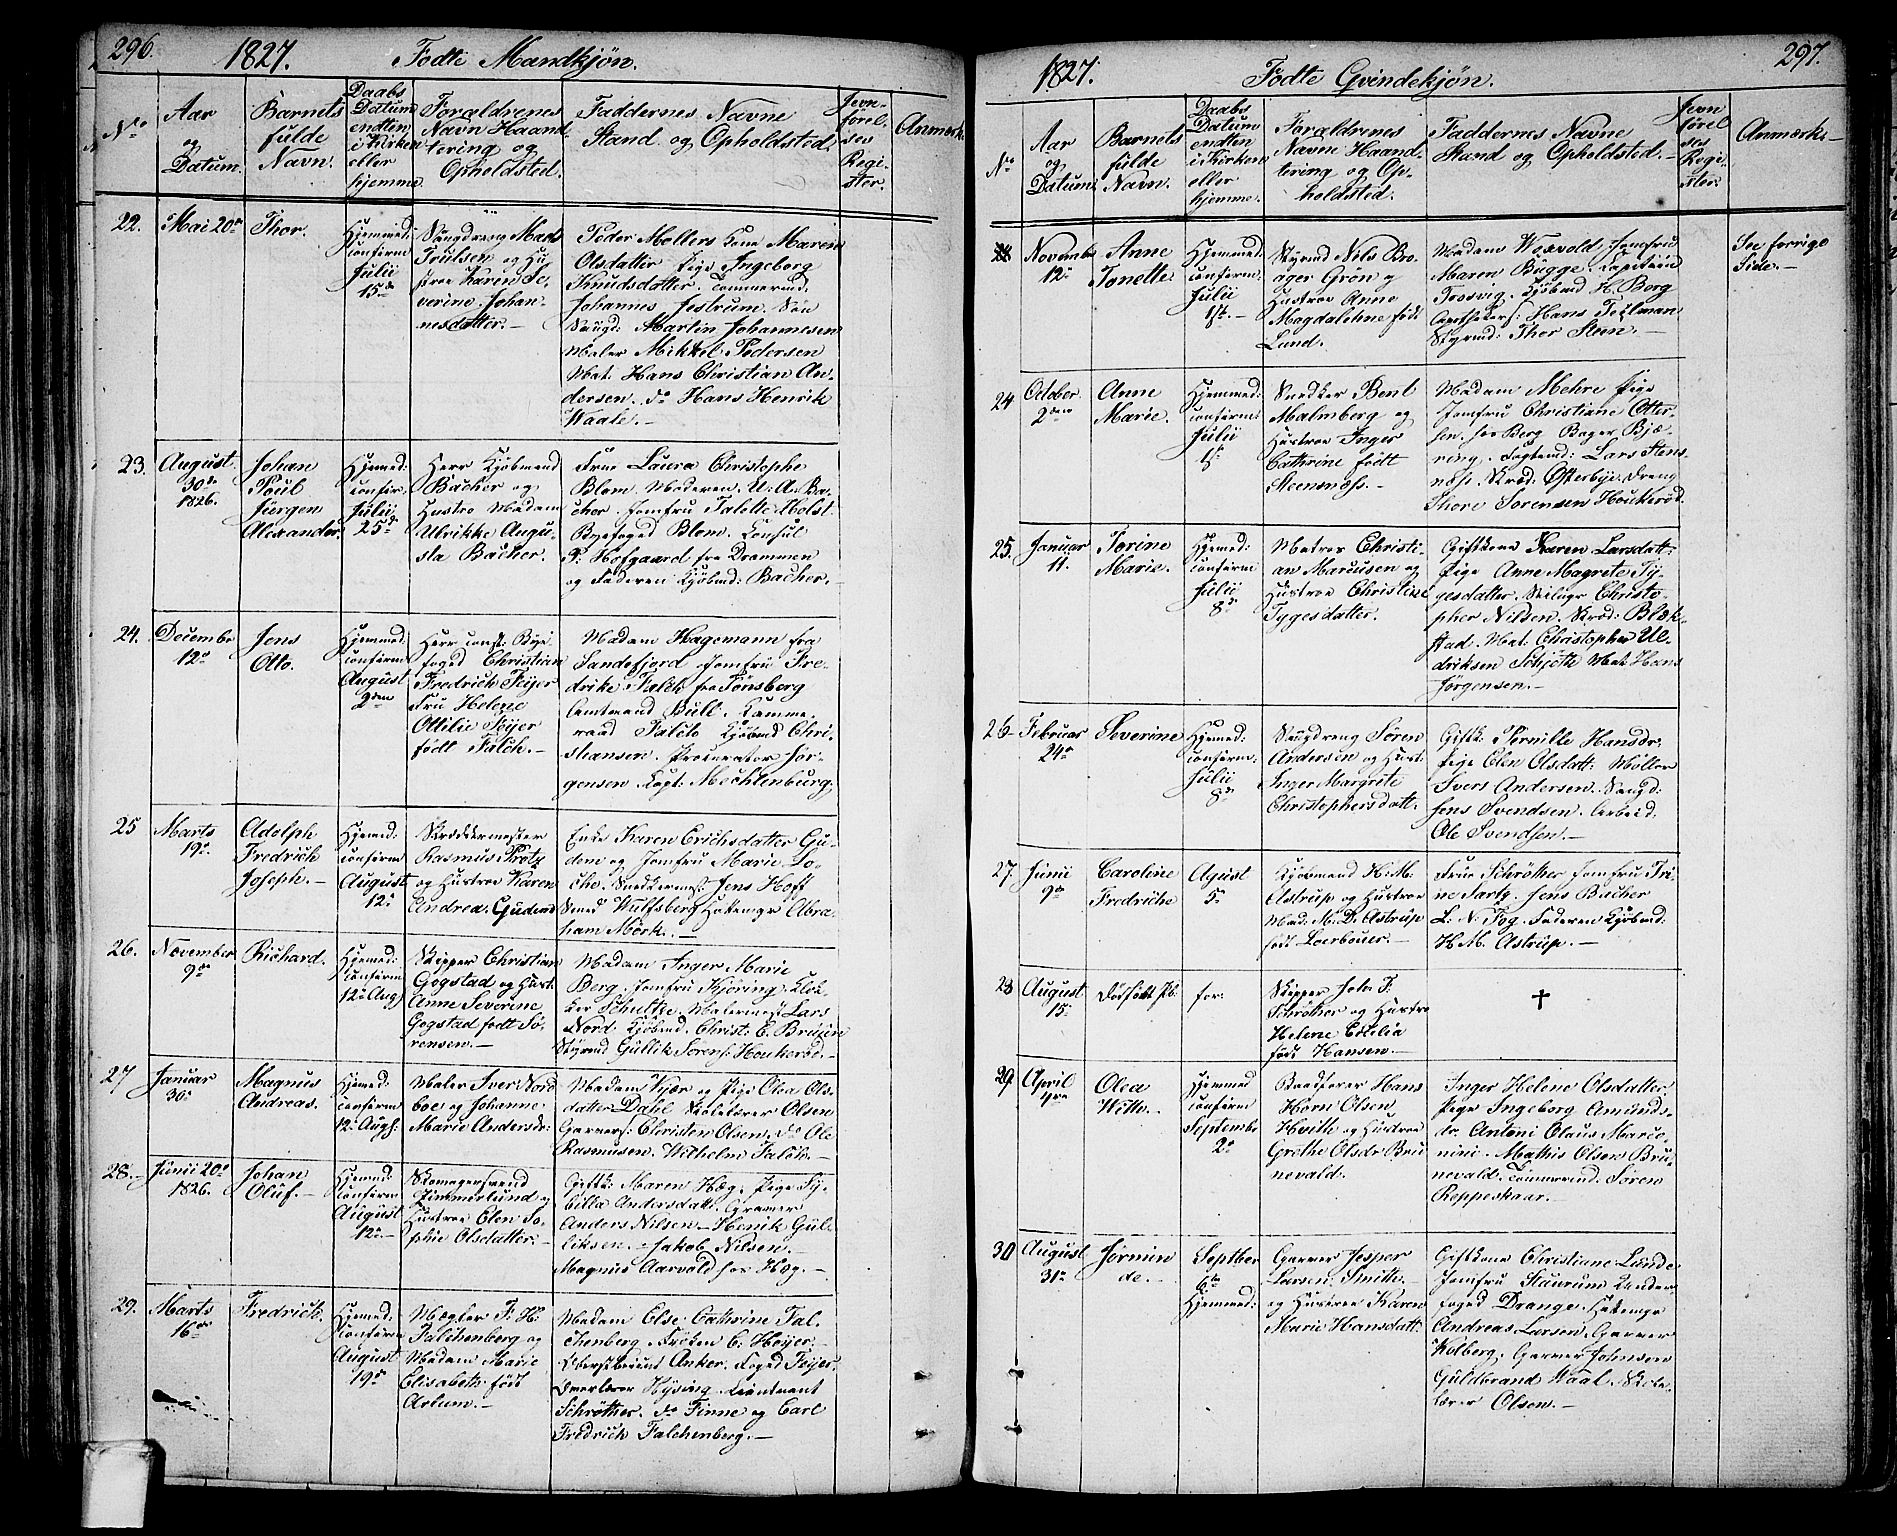 296.
1827. Fødte Mandkjøn.
No
Aar
og
Datum.
Barnets
fulde
Navn.
Daabs
Datum
endten
i Kirken
eller
hjemme
Foraldrenes
Navn Haand
tering og
Opholdsted.
Faddernes Navne
Stand og Opholdsted
Jevn-
førel-
ses
Regi-
ster.
Anmærk
22.
Mai 20de
Thor.
Hjemmed:
confirm
Julii
15de
Mads
Trulsen og Hu
stroe Karen Se-
verine Johan-
nesdatter.-
Peder Mollers Kone Maren
Olsdatter Pige Ingeborg
Knudsdatter.
Johannes Jestrum.
Martin Johannesen
Maler Mikkel Pedersen
Mat. Hans Christian An-
dersen. do Hans Henrik
Waale.-
23.
August
30de
1826.
Johan
Poul
Jürgen
Alexander.
Hjemmed:
confir.
Julii
25de
Herr Kjøbmand
Bacher og
Hustro Madam
Ulrikke Augu-
sta Bacher.
Frue Laura Christophe
Blom. Moderen. U: A: Ba-
cher. Jomfru Talette Holst
Byefoged Blom. Consul
P. Hofgaard fra Drammen
og Faderen Kjøbmd: Bacher.
24.
Decembr
12te
Jens
Otto.
Hjemmed.
confirm
August
2den
Herr const. Bye
foged Christian
Fredrich Feijer
Fru Helene
Ottilie Feijer
født Falch.-
Madam Hagemann fra
Sandefjord Jomfru Fre-
drike Falch fra Tønsberg
Amtmand Bull. Kamme-
raad Falck Kjøbmd Chri-
stiansen. Procurator Jør-
gensen Capt: Mechlenburg.
25
Marts
19de
Adolph
Fredrich
Joseph.-
Hjemmed:
confirm
August
12te
Skreddermester
Rasmus Protz
og Hustroe Karen
Andrea. Gudem
Enke Karen Erichsdatter Gu-
dem og Jomfru Marie Lo-
che. Snedkermst Jens Hoff
Smed Wulfsberg Abra
ham Mörk.-
26.
November
9de
Richard.
Hjemmed:
confirm
12te Aug
Skipper Christian
Gogstad og Hust.
Anne Severine
Gogstad født Sö-
rensen.-
Madam Inger Marie
Berg. Jomfru Kjøring. Klok
ker Schultze Malermest Lars
Nord. Kjøbmd. Christ: E. Bruun
Styrmd Gullik Sørens: Houkerød.-
27
Januar
30te
Magnus
Andreas.
Hjemmed:
confirm
12te Aug.
Maler Iver Nord
boe og Johanne
Marie Andersdr:
Madam Kjær og Pige Olea Ols-
datter Dahl Skolelærer Olsen
Garvers: Christen Olsen. do Ole
Rasmussen. Wilhelm Falck.-
28.
Junii 20de
1826.
Johan
Oluf.-
Hjemmed
confirm
August
12te
Skomagersvend
Zimmerlund og
Hustroe Elen So-
phie Olsdatter.-
Giftk: Maren Hæg. Pige Sy-
billa Andersdatt. Gramer
Anders Nilsen - Henik Gul-
liksen.- Jakob Nilsen.-
Magnus Aarvold hos Hæg.-
29.
Marts
16de
Fredrich.
Hjemmed:
confirm
August
19de
Mægler F. H:
Falchenberg og
Madam Marie
Elisabeth født
Arlum.-
Madam Else Cathrine Fal-
chenberg Frøken C: Høyer.
Anker. Foged Feijer
Overlærer Hysing. Lieutnant
Schrøther. do Finne og Carl
Fredrich Falchenberg.-
297.
1827. Fødte Qvindekjøn.
No
Aar
og
Datum
Barnets
fulde
Navn.
Daabs
Datum
endten
i Kirken
eller
hjemme.
Foraldrenes
Navne Haand-
tering og Op-
holdsted.
Faddernes Navne
Stand og Opholdsted.-
Jevn
førel
ses
Regi-
ster.
Anmærk-
Novembr
12te
Anne
Tonette.
Hjemmed:
confirm:
Julii
1ste.-
Styrmd Nils Bro-
ager Grøn og
Hustroe Anne
Magdalehne født
Lund.
Madam Woxvold. Jomfru
Maren Bugge. Capitein
Trosvig. Kjøbmd H. Berg
Apotheker: Hans Tollman
Styrmd: Thor Steen.-
See forrige
Side.-
24
October
2den
Anne
Marie.
Hjemmed:
confirm
Julii
1ste
Snedker Bent
Malmberg og
Hustroe Inger
Cathrine født
Steensnæss.-
Madam Mehre Pige
Jomfru Christiane Otter-
sen. hos Berg Bager Bjæ-
ring. Lars Stens
næs. Skrød: Østerbye. Dreng
Thore Sorensen Houkerød
25.
Januar
11.
Torine
Marie.
Hjemmed:
confirm
Julii
8de
Matros Christi-
an Marcusen og
Hustroe Christine
Tygesdatter.
Giftkone Karen Larsdatt:
Pige Anne Magrete Ty-
gesdatter. Christo-
pher Nilsen. Skrød: Blæk-
stad. Mat. Christopher Ul-
driksen Schjøth Mat. Hans
Jørgensen.-
26-
Februar
24de
Severine
Hjemmed:
confirm.
Julii
8de
Søren
Andersen og Hust:
Inger Margrete
Christophersdatt.
Giftk: Pernille Hansdr.
Pige Elen Olsdatt: Møller
Svers Andersen.
Jens Svendsen. Arbeid:
Ole Svendsen.-
27.
Junii
9de
Caroline
Fredriche
Agust
5te
Kjøbmand H. M.
Astrup og Hustroe
Mad: M: D. Astrup
født Loerbouer.-
Frue Schröther Jomfru Tri
ne Sartz. Jens Bacher
L: N. Fog. Faderen Kjøbmd:
H. M. Astrup.-
28
August
15de
Dødfødt Pb:
for:
Skipper Joh. F:
Schrøther og Hustroe
Helene Cecilia
født Hansen.-
†
29.
April
4de
Olea
Witte.
Hjemmed
confirm
Septembr
2de
Hans
Horn Olsen
Hvith og Hustroe
Grethe Olsdr Bru
nevald.
Inger Helene Olsdatter.
Pige Ingeborg Amunds-
dr. Antoni Olaus Marco-
nini. Mathis Olsen Bru-
nevald. Tommermd. Søren
Reppeskaar.-
30
August
31te
Jørmin
de.-
Septbr
6te
Hjemmed:
Garver Jesper
Larsen Smith.-
og Hustroe Karen
Marie Hansdatt:
Giftkone Christiane Lunde
Jomfru Staurum Under
foged Drange.
Andreas Larsen. Garver
Kolberg. Garver Johnsen
Guldbrand Waal. Skole-
lærer Olsen.-